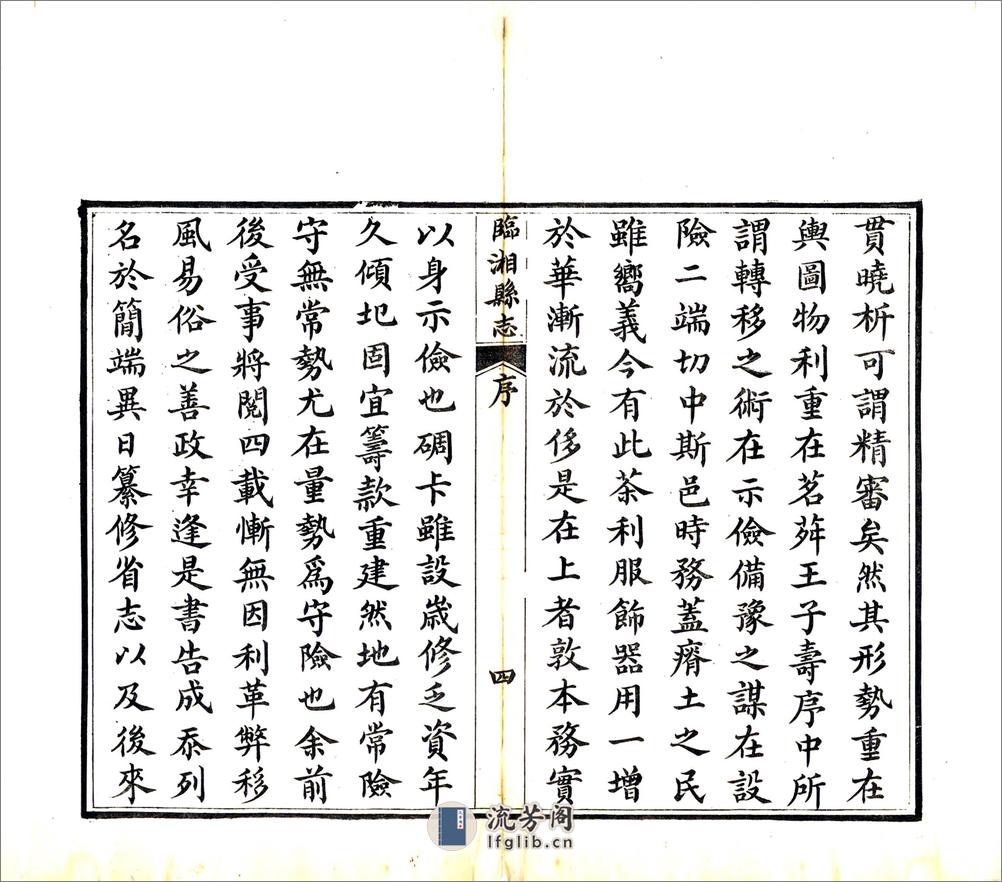 貫曉析可謂精審矣然其形勢重在
輿圖物利重在茗荈王子壽序中所
謂轉移之術在示儉備豫之謀在設
險二端切中斯邑時務蓋瘠土之民
雖嚮義今有此茶利服飾器用一增
於華漸流於侈是在上者敦本務實
臨湘縣志
序
四
以身示儉也碉卡雖設歲修乏資年
久傾圮固宜籌款重建然地有常險
守無常勢尤在量勢爲守險也余前
後受事將閱四載慚無因利革弊移
風易俗之善政幸逢是書告成忝列
名於簡端異日纂修省志以及後來
流芳阁
lfglib.cn